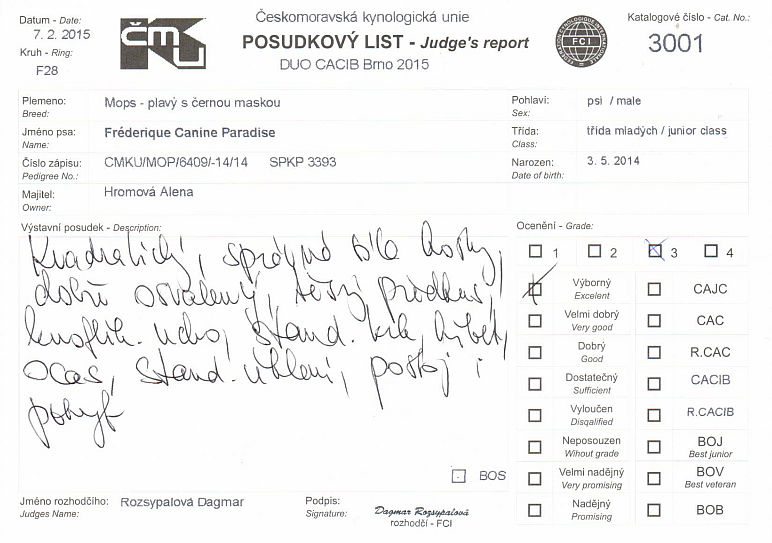 Datum - Date:
7. 2. 2015
Kruh - Ring:
F28
ČMKU
Českomoravská kynologická unie
POSUDKOVÝ LIST - Judge's report
DUO CACIB Brno 2015
FCI
Katalogové číslo - Cat. No.:
3001
Plemeno:
Breed:
Mops - plavý s černou maskou
Pohlaví:
Sex:
psi / male
Jméno psa:
Name:
Fréderique Canine Paradise
Třída:
Class:
třída mladých / junior class
Číslo zápisu:
Pedigree No.:
CMKU/MOP/6409/-14/14 SPKP 3393
Narozen:
Date of birth:
3. 5. 2014
Majitel:
Owner:
Hromová Alena
Výstavní posudek - Description:
Kvadratický, správné síla kosty,
dobře osvalený, předhrudí,
knoflík. ucho, stand. hřbet,
ocas, stand. úhlení, postoj i
pohyb
BOS
Ocenění - Grade:
1 2 3 4
Výborný
Excelent
CAJC
Velmi dobrý
Very good
CAC
Dobrý
Good
R.CAC
Dostatečný
Sufficient
CACIB
Vyloučen
Disqalified
R.CACIB
Neposouzen
Wihout grade
BOJ
Best junior
Velmi nadějný
Very promising
BOV
Best veteran
Nadějný
Promising
BOB
Jméno rozhodčího:
Judges Name:
Rozsypalová Dagmar
Podpis:
Signature:
Dagmar Rozsypalová
rozhodčí - FCI